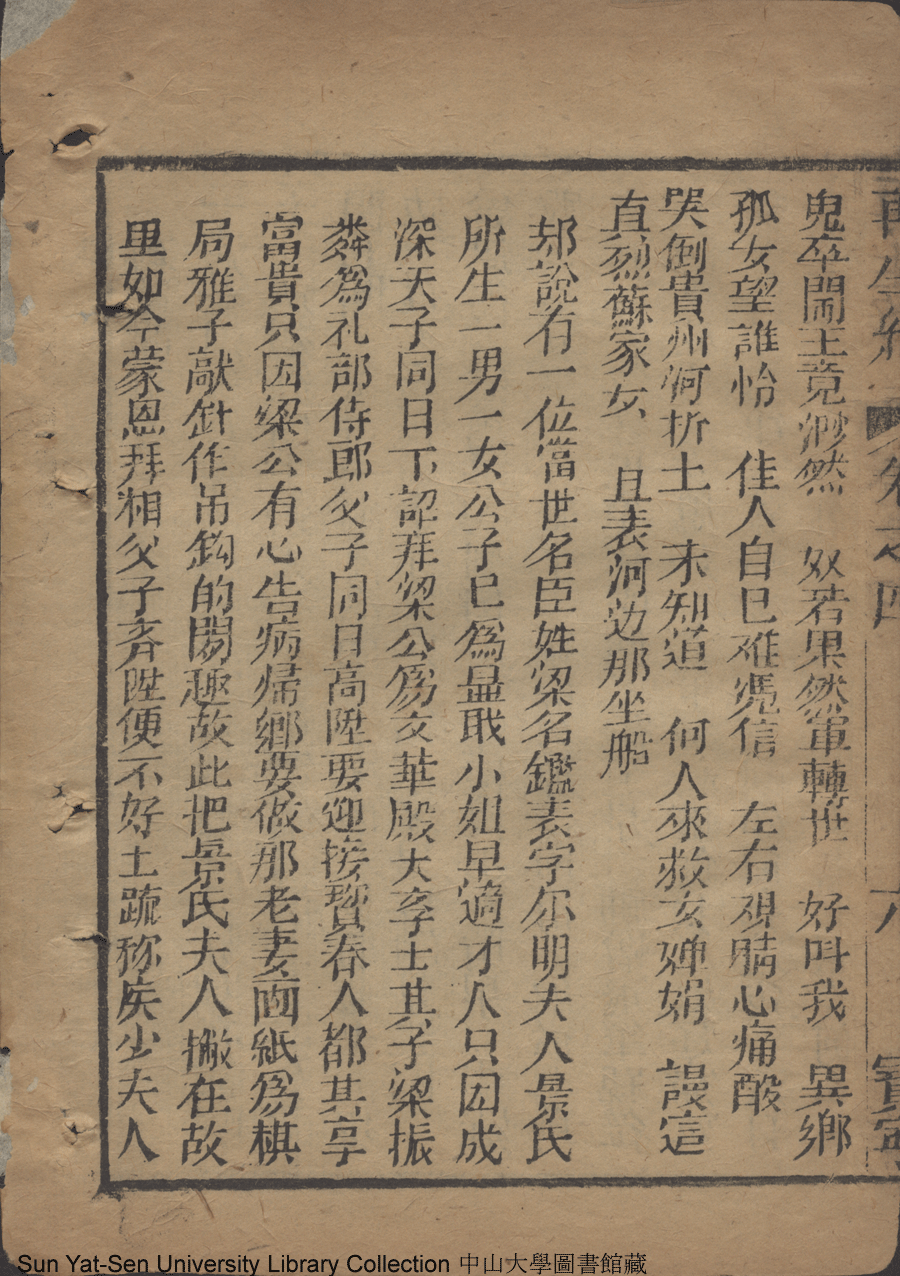 再生緣 卷之四 六 寳寧
鬼卒閙王竟渺然 奴若果然軍轉世 好呌我 異鄉
孤女望誰怡 佳人自巳难凴信 左右覌睛心痛酸
哭倒貴州河折土 未知道 何人來救女婵娟 謾這
直烈蘇家女 且表河边那坐船
却説有一位當世名臣姓梁名鑑表字尔明夫人景氏
所生一男一女公子巳為显职小姐早適才人只因成
深天子同日下詔拜梁公為文華殿大孛士其子梁振
粦為礼部侍郎父子同日高陞要迎接寳春人都其享
富貴只因梁公有心告病帰鄉要做那老妻画紙為棋
局雅子敲針作吊鈎的閑趣故此把景氏夫人撇在故
里如今蒙恩拜相父子斉陞便不好土疏称疾少夫人
Sun Yat-Sen University Library Collection 中山大學圖書館藏